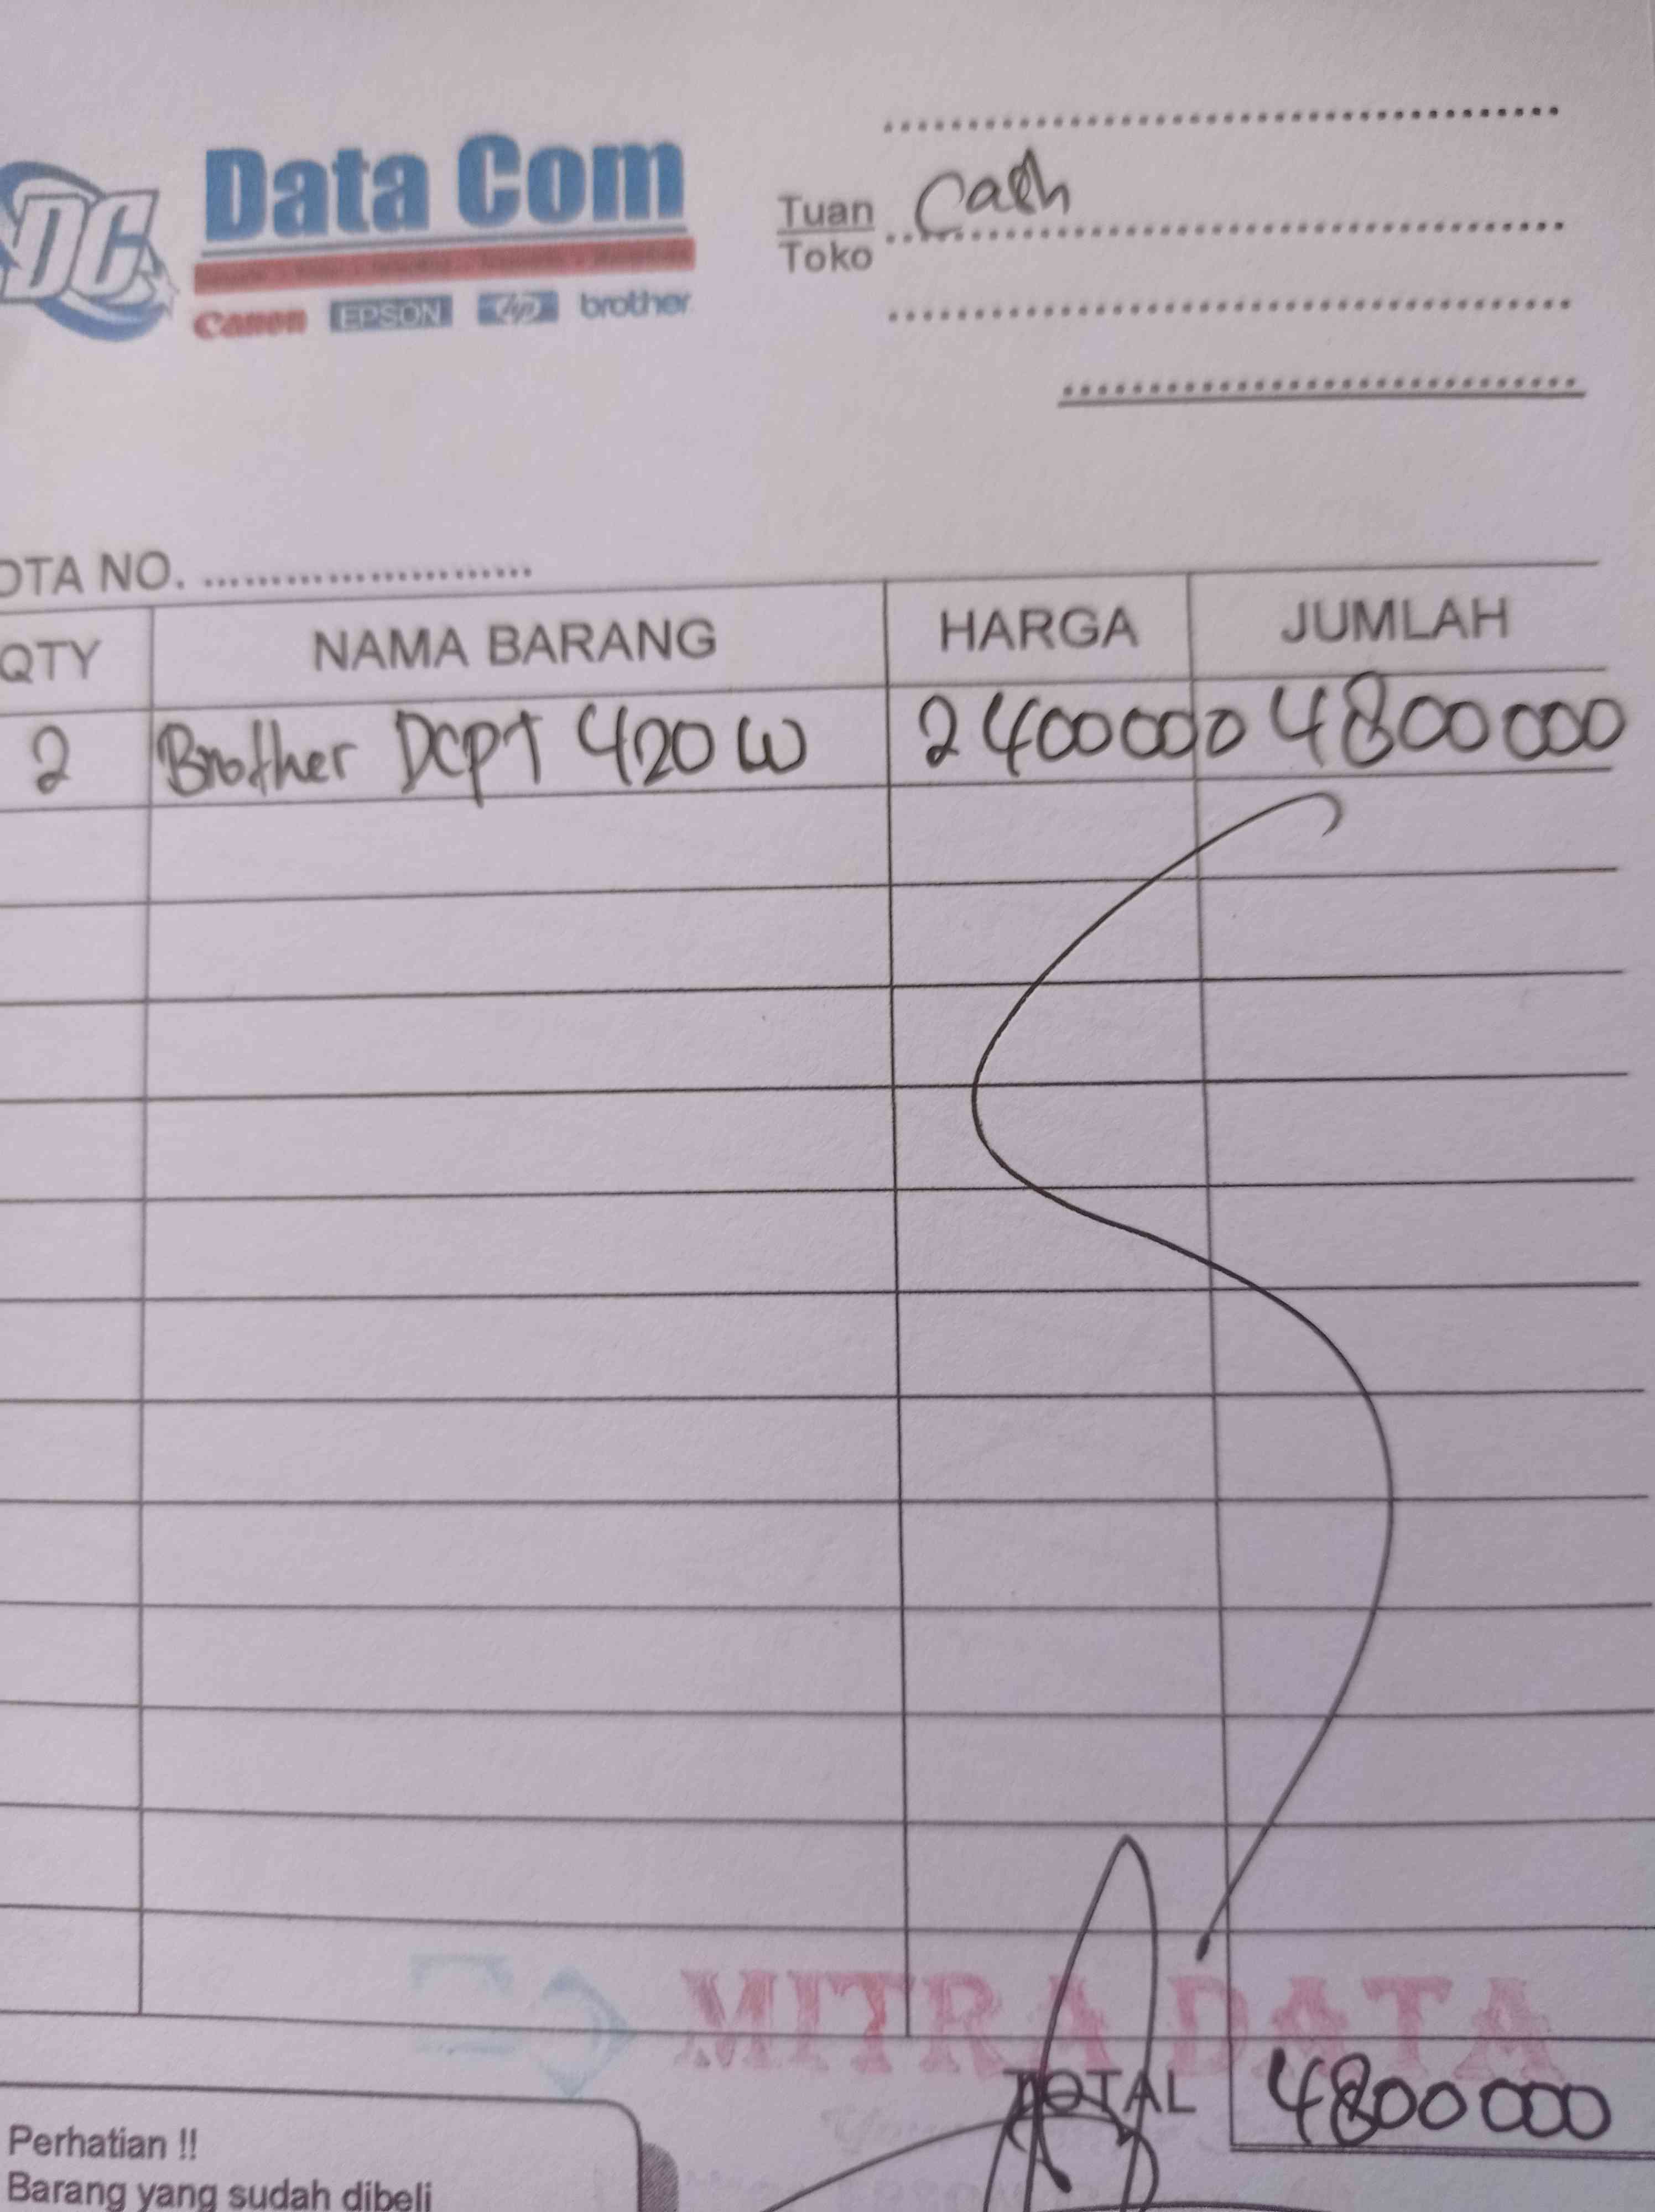 DC
Data Com
Canon EPSON hp brother
Tuan Cash
Toko
OTA NO.
QTY NAMA BARANG HARGA JUMLAH
2 Brother DCPT 420 W 2400000 4800000
MITRA DATA
TOTAL 4800000
Perhatian !!
Barang yang sudah dibeli